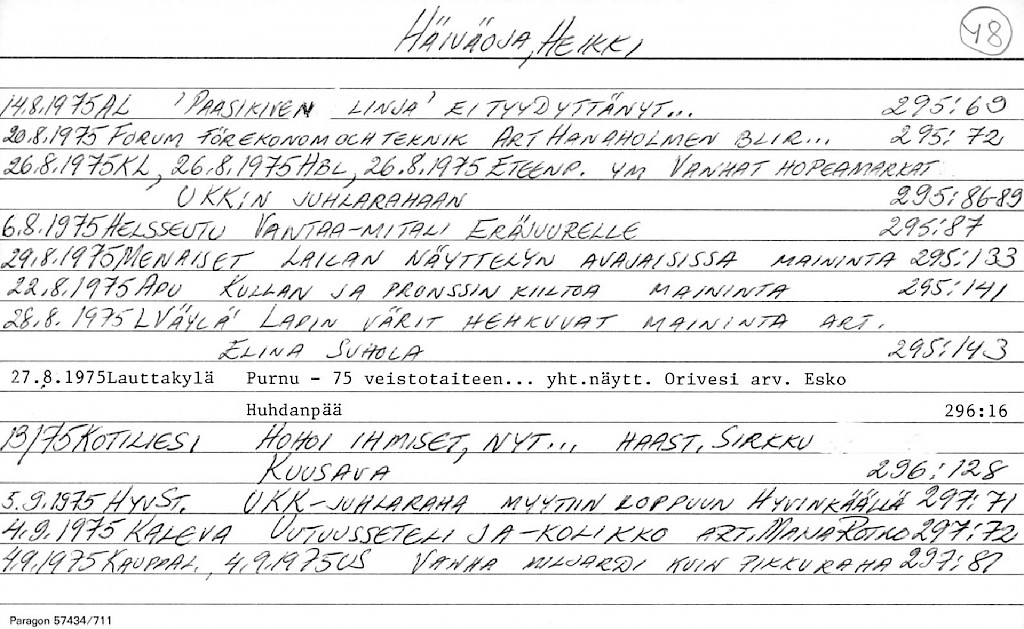 HÄIVÄOJA, HEIKKI 48
14.8.1975 AL 'PAASIKIVEN LINJA' EI TYYDYTTÄNYT... 295:69
20.8.1975 FORUM FÖR EKONOM OCH TEKNIK ART HANAHOLMEN BLIR... 295:72
26.8.1975 KL, 26.8.1975 HBL, 26.8.1975 ETEENP. YM VANHAT HOPEAMARKAT
UKK:N JUHLARAHAAN 295:86-89
6.8.1975 HELSSEUTU VANTAA-MITALI ERÄJUURELLE 295:87
29.8.1975 MENAISET LAILAN NÄYTTELYN AVAJAISISSA MAININTA 295:133
22.8.1975 APU KULLAN JA PRONSSIN KIILTOA MAININTA 295:141
28.8.1975 LVÄYLÄ LAPIN VÄRIT HEHKUVAT MAININTA ART.
ELINA SUHOLA 295:143
27.8.1975 Lauttakylä Purnu - 75 veistotaiteen... yht.näytt. Orivesi arv. Esko
Huhdanpää 296:16
13/75 KOTILIESI HOHOI IHMISET, NYT... HAAST. SIRKKU
KUUSAVA 296:128
5.9.1975 HYVST. UKK-JUHLARAHA MYYTIIN LOPPUUN HYVINKÄÄLLÄ 297:71
4.9.1975 KALEVA UUTUUSSETELI JA -KOLIKKO ART. 297:72
4.9.1975 KAUPPAL., 4.9.1975 US VANHA MILJARDI KUIN PIKKURAHA 297:81
Paragon 57434/711